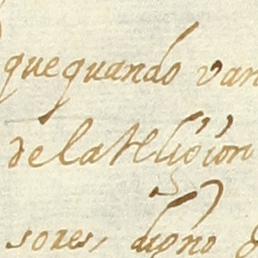 que quando van
de la Religion
sores, digno